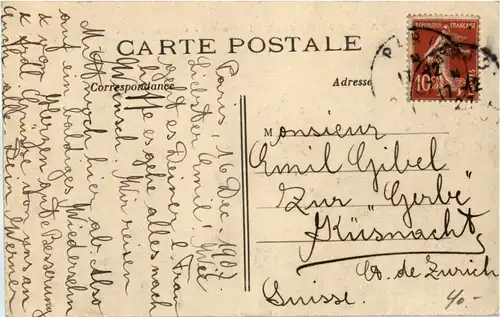 CARTE POSTALE
Correspondance
Adresse
RÉPUBLIQUE FRANÇAISE
10
POSTES
Paris 16 Dec. 190
Liebster Emil! Wie
geht es Deiner l. Frau
hoffe es gehe alles nach
Wunsch. Wir reisen
Mittwoch hier ab. Also
auf ein baldiges Wiedersehn
& von Herzen gute Besserung
& Grüsse von uns an
Werner
Monsieur
Emil Gibel
Zur "Gerbe"
Küsnacht
Ct. de Zurich
Suisse.
40.-